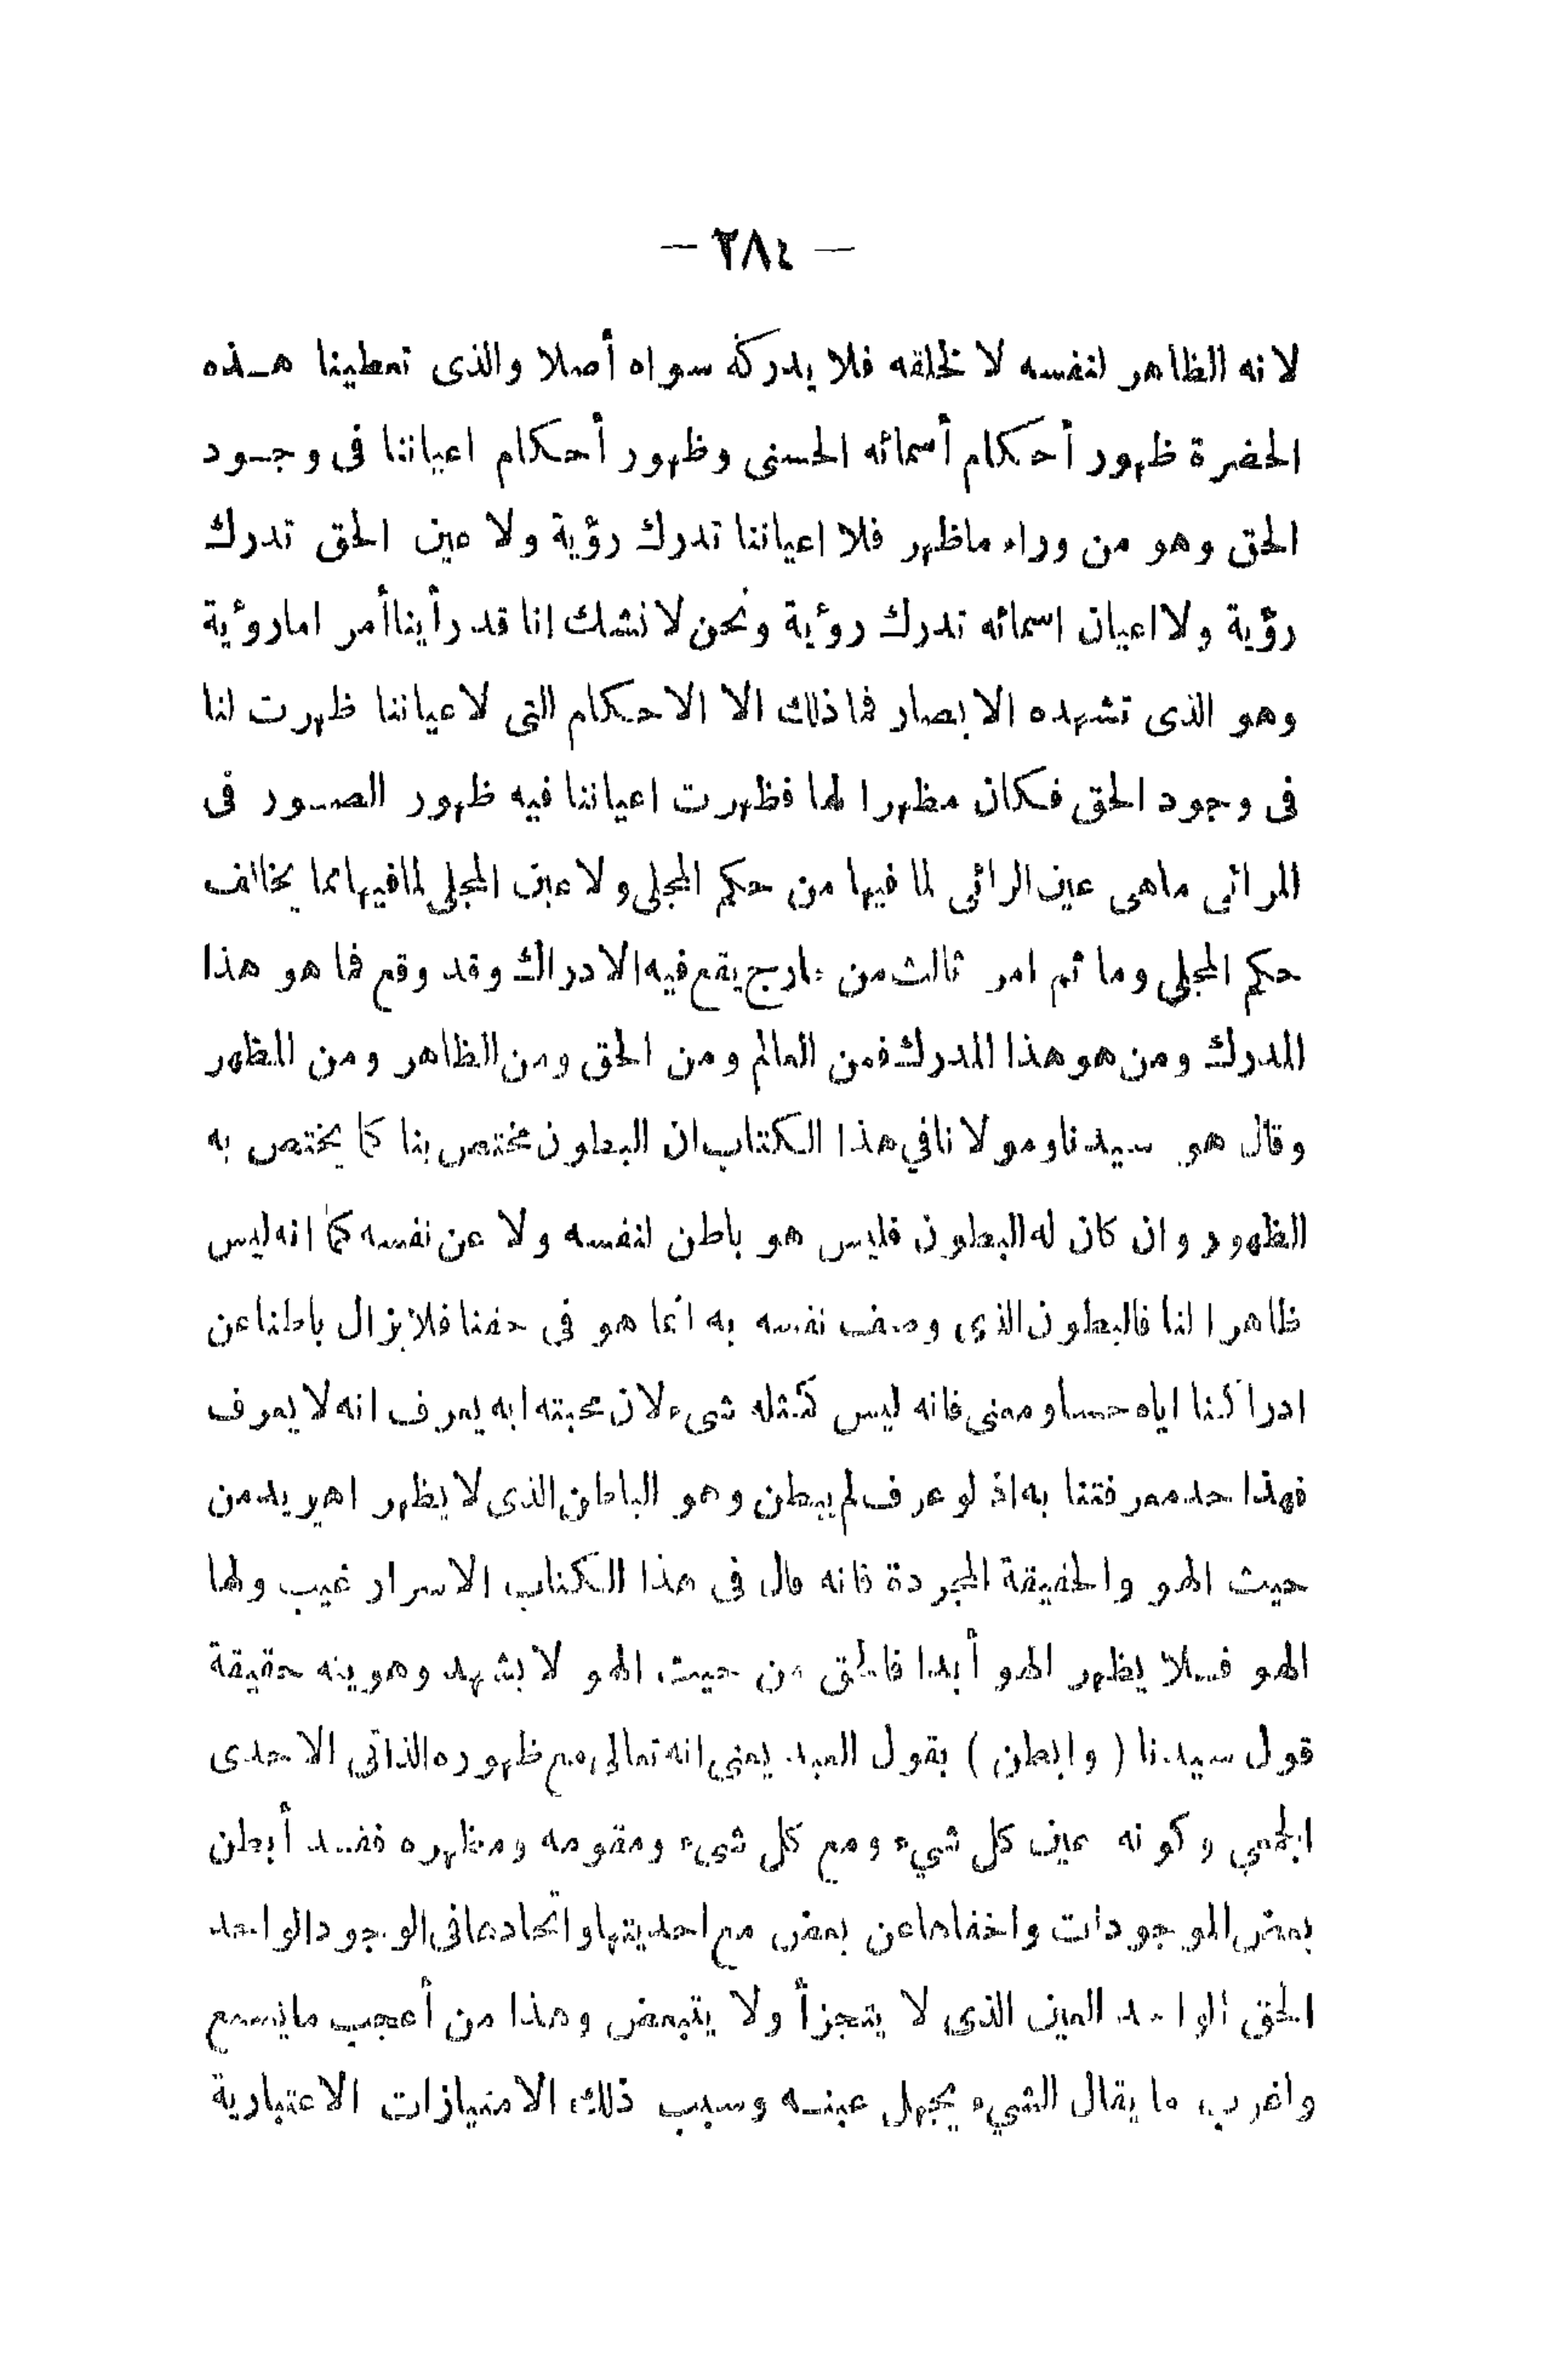 — ٢٨٤ —
لانه الظاهر لنفسه لا لخلقه فلا يدركه سواه أصلا والذى تعطينا هـذه
الحضرة ظهور أحكام أسمائه الحسنى وظهور أحكام اعياننا فى وجـود
الحق وهو من وراء ماظهر فلا اعياننا تدرك رؤية ولا عين الحق تدرك
رؤية ولا اعيان اسمائه تدرك رؤية ونحن لا نشك انا قد رأينا أمر اما رؤية
وهو الذى تشهده الابصار فما ذلك الا الاحكام التى لاعياننا ظهرت لنا
فى وجود الحق فكان مظهرا لها فظهرت اعياننا فيه ظهور الصـور فى
المرائى ماهى عين الرائى لما فيها من حكم المجلى ولا عين المجلى لما فيها مما يخالف
حكم المجلى وما ثم امر ثالث من خارج يقع فيه الادراك وقد وقع فما هو هذا
المدرك ومن هو هذا المدرك فمن العالم ومن الحق ومن الظاهر ومن المظهر
وقال هو سيدنا ومولانا في هذا الكتاب ان البطون مختص بنا كما يختص به
الظهور وان كان له البطون فليس هو باطن لنفسه ولا عن نفسه كما انه ليس
ظاهرا لنا فالبطون الذى وصف نفسه به انما هو فى حقنا فلا يزال باطنا عن
ادراكنا اياه حسا ومعنى فانه ليس كمثله شىء لان محبته ابه يعرف انه لا يعرف
فهذا حد معرفتنا به اذ لو عرف لم يبطن وهو الباطن الذى لا يظهر اهـ يريد من
حيث الهو والحقيقة المجردة فانه قال فى هذا الكتاب الاسرار غيب ولها
الهو فـلا يظهر الهو أبدا فالحق من حيث الهو لا يشهد وهويته حقيقة
قول سيدنا ( وابطن ) بقول العبد يعنى انه تعالى مع ظهوره الذاتى الاحدى
الجمعي وكونه عين كل شيء ومع كل شىء ومقومه ومظهره فقـد أبطن
بعض الموجودات واخفاها عن بعض مع احديتها واتحادها فى الوجود الواحد
الحق الواحد العين الذى لا يتجزأ ولا يتبعض وهذا من أعجب ما يسمع
واغرب ما يقال الشيء يجهل عينـه وسبب ذلك الامتيازات الاعتبارية